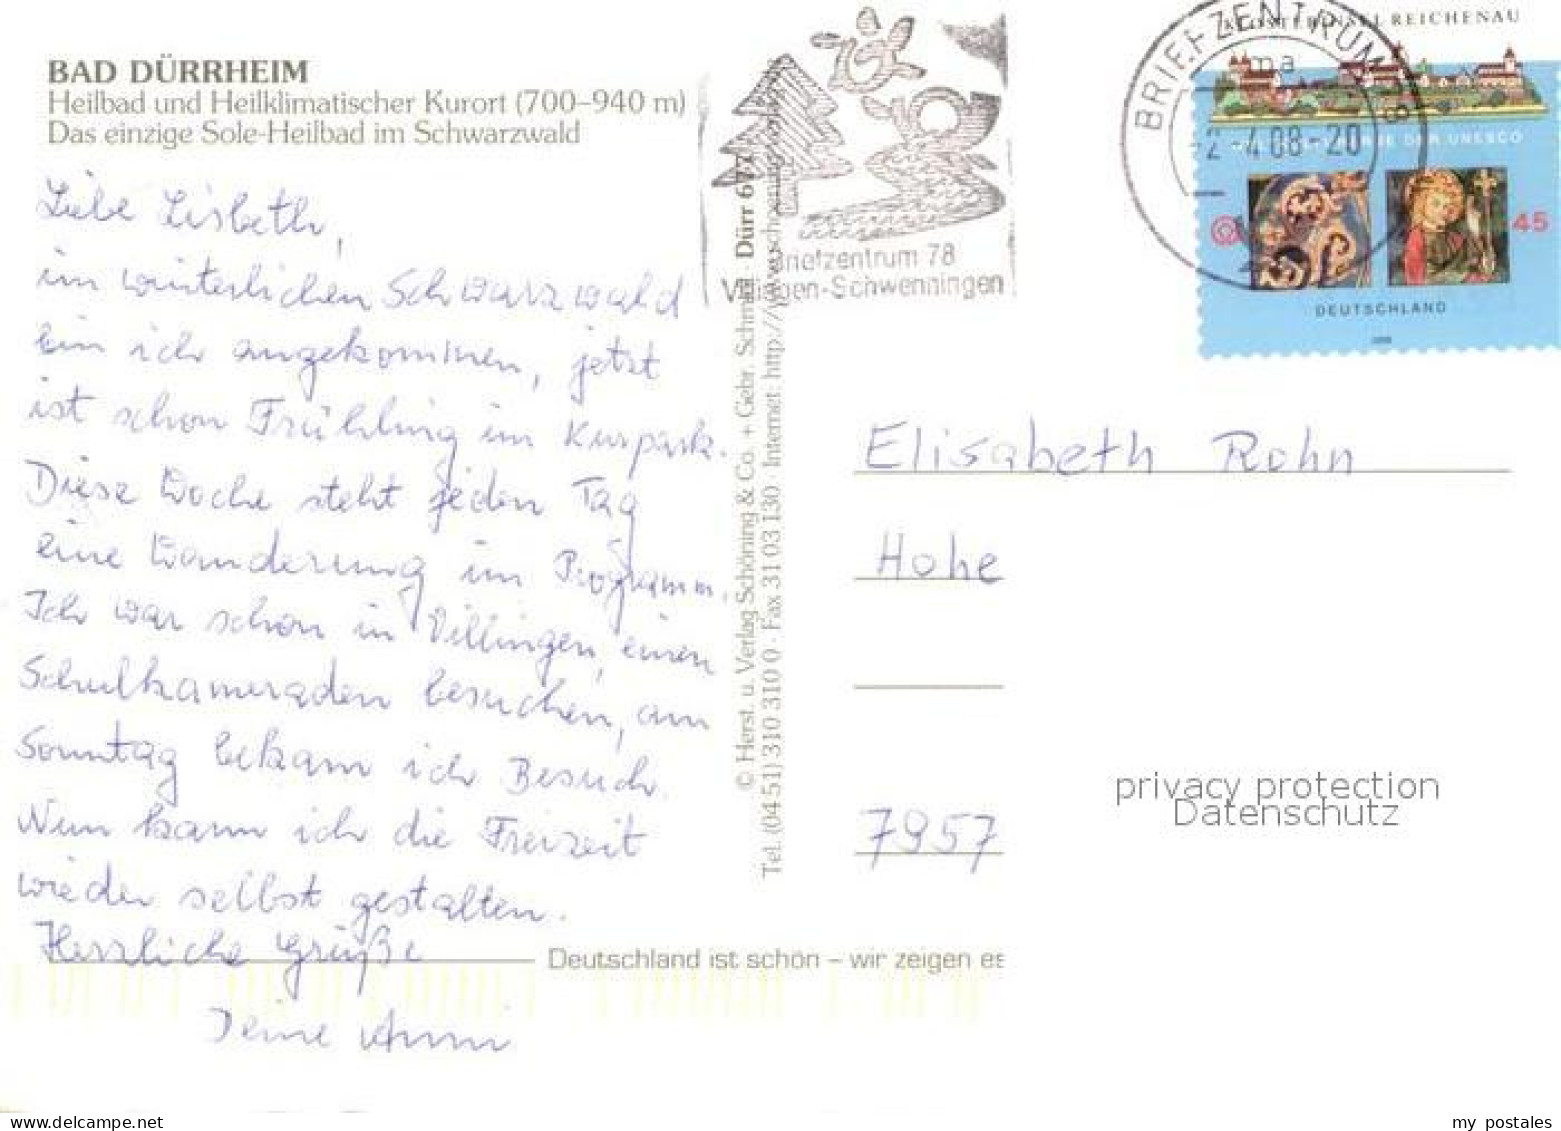 BAD DÜRRHEIM
Heilbad und Heilklimatischer Kurort (700–940 m)
Das einzige Sole-Heilbad im Schwarzwald
Liebe Lisbeth,
im winterlichen Schwarzwald
bin ich angekommen, jetzt
ist schon Frühling im Kurpark.
Diese Woche steht jeden Tag
eine Wanderung im Programm.
Ich war schon in Villingen, einen
Schulkameraden besuchen, am
Sonntag bekam ich Besuch.
Nun kann ich die Freizeit
wieder selbst gestalten.
Herzliche Grüße
Deine Anni
Deutschland ist schön – wir zeigen es
© Herst. u. Verlag Schöning & Co. + Gebr. Schmidt · Dürr 677
Tel. (04 51) 310 310 0 · Fax 31 03 130 · Internet: http://www.schoening-verlag
Briefzentrum 78
Villingen-Schwenningen
BRIEFZENTRUM 78
-2.4.08-20
ma
KLOSTERINSEL REICHENAU
DER UNESCO
45
DEUTSCHLAND
Elisabeth Rohn
Hohe
7957
privacy protection
Datenschutz
my postales